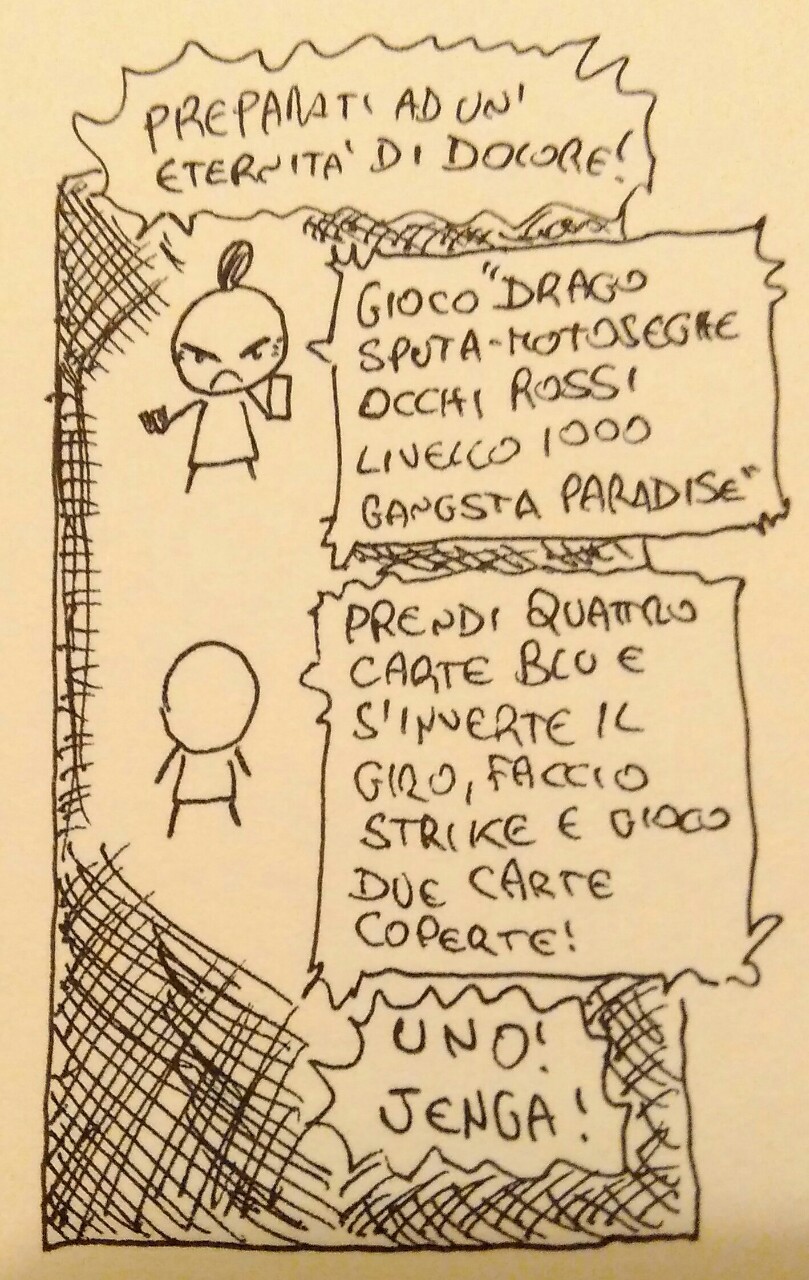 PREPARATI AD UN'
ETERNITA' DI DOLORE!
GIOCO "DRAGO
SPUTA-MOTOSEGHE
OCCHI ROSSI
LIVELLO 1000
GANGSTA PARADISE"
PRENDI QUATTRO
CARTE BLU E
S'INVERTE IL
GIRO, FACCIO
STRIKE E GIOCO
DUE CARTE
COPERTE!
UNO!
JENGA!